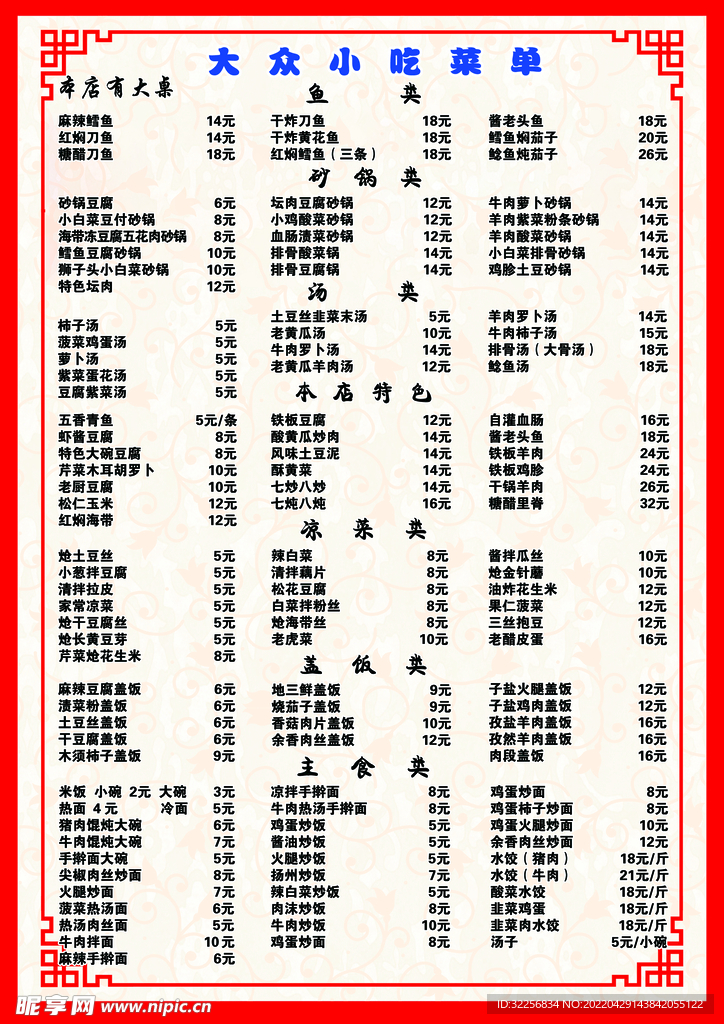 大众小吃菜单
本店有大桌
鱼 类
麻辣鳕鱼 14元 干炸刀鱼 18元 酱老头鱼 18元
红焖刀鱼 14元 干炸黄花鱼 18元 鳕鱼焖茄子 20元
糖醋刀鱼 18元 红焖鳕鱼（三条） 18元 鲶鱼炖茄子 26元
砂 锅 类
砂锅豆腐 6元 坛肉豆腐砂锅 12元 牛肉萝卜砂锅 14元
小白菜豆付砂锅 8元 小鸡酸菜砂锅 12元 羊肉紫菜粉条砂锅 14元
海带冻豆腐五花肉砂锅 8元 血肠渍菜砂锅 12元 羊肉酸菜砂锅 14元
鳕鱼豆腐砂锅 10元 排骨酸菜锅 14元 小白菜排骨砂锅 14元
狮子头小白菜砂锅 10元 排骨豆腐锅 14元 鸡胗土豆砂锅 14元
特色坛肉 12元
汤 类
土豆丝韭菜末汤 5元 羊肉罗卜汤 14元
柿子汤 5元 老黄瓜汤 10元 牛肉柿子汤 15元
菠菜鸡蛋汤 5元 牛肉罗卜汤 14元 排骨汤（大骨汤） 18元
萝卜汤 5元 老黄瓜羊肉汤 12元 鲶鱼汤 18元
紫菜蛋花汤 5元
豆腐紫菜汤 5元
本 店 特 色
五香青鱼 5元/条 铁板豆腐 12元 自灌血肠 16元
虾酱豆腐 8元 酸黄瓜炒肉 14元 酱老头鱼 18元
特色大碗豆腐 8元 风味土豆泥 14元 铁板羊肉 24元
芹菜木耳胡罗卜 10元 酥黄菜 14元 铁板鸡胗 24元
老厨豆腐 10元 七炒八炒 14元 干锅羊肉 26元
松仁玉米 12元 七炖八炖 16元 糖醋里脊 32元
红焖海带 12元
凉 菜 类
炝土豆丝 5元 辣白菜 8元 酱拌瓜丝 10元
小葱拌豆腐 5元 清拌藕片 8元 炝金针蘑 10元
清拌拉皮 5元 松花豆腐 8元 油炸花生米 12元
家常凉菜 5元 白菜拌粉丝 8元 果仁菠菜 12元
炝干豆腐丝 5元 炝海带丝 8元 三丝抱豆 12元
炝长黄豆芽 5元 老虎菜 10元 老醋皮蛋 16元
芹菜炝花生米 8元
盖 饭 类
麻辣豆腐盖饭 6元 地三鲜盖饭 9元 子盐火腿盖饭 12元
渍菜粉盖饭 6元 烧茄子盖饭 9元 子盐鸡肉盖饭 12元
土豆丝盖饭 6元 香菇肉片盖饭 10元 孜盐羊肉盖饭 16元
干豆腐盖饭 6元 余香肉丝盖饭 12元 孜然羊肉盖饭 16元
木须柿子盖饭 9元 肉段盖饭 16元
主 食 类
米饭 小碗 2元 大碗 3元 凉拌手擀面 8元 鸡蛋炒面 8元
热面 4元 冷面 5元 牛肉热汤手擀面 8元 鸡蛋柿子炒面 8元
猪肉馄炖大碗 6元 鸡蛋炒饭 5元 鸡蛋火腿炒面 10元
牛肉馄炖大碗 7元 酱油炒饭 5元 余香肉丝炒面 12元
手擀面大碗 5元 火腿炒饭 5元 水饺（猪肉） 18元/斤
尖椒肉丝炒面 8元 扬州炒饭 7元 水饺（牛肉） 21元/斤
火腿炒面 7元 辣白菜炒饭 5元 酸菜水饺 18元/斤
菠菜热汤面 6元 肉沫炒饭 8元 韭菜鸡蛋 18元/斤
热汤肉丝面 5元 牛肉炒饭 10元 韭菜肉水饺 18元/斤
牛肉拌面 10元 鸡蛋炒面 8元 汤子 5元/小碗
麻辣手擀面 6元
昵享网 www.nipic.cn
ID:32256834 NO:20220429143842055122